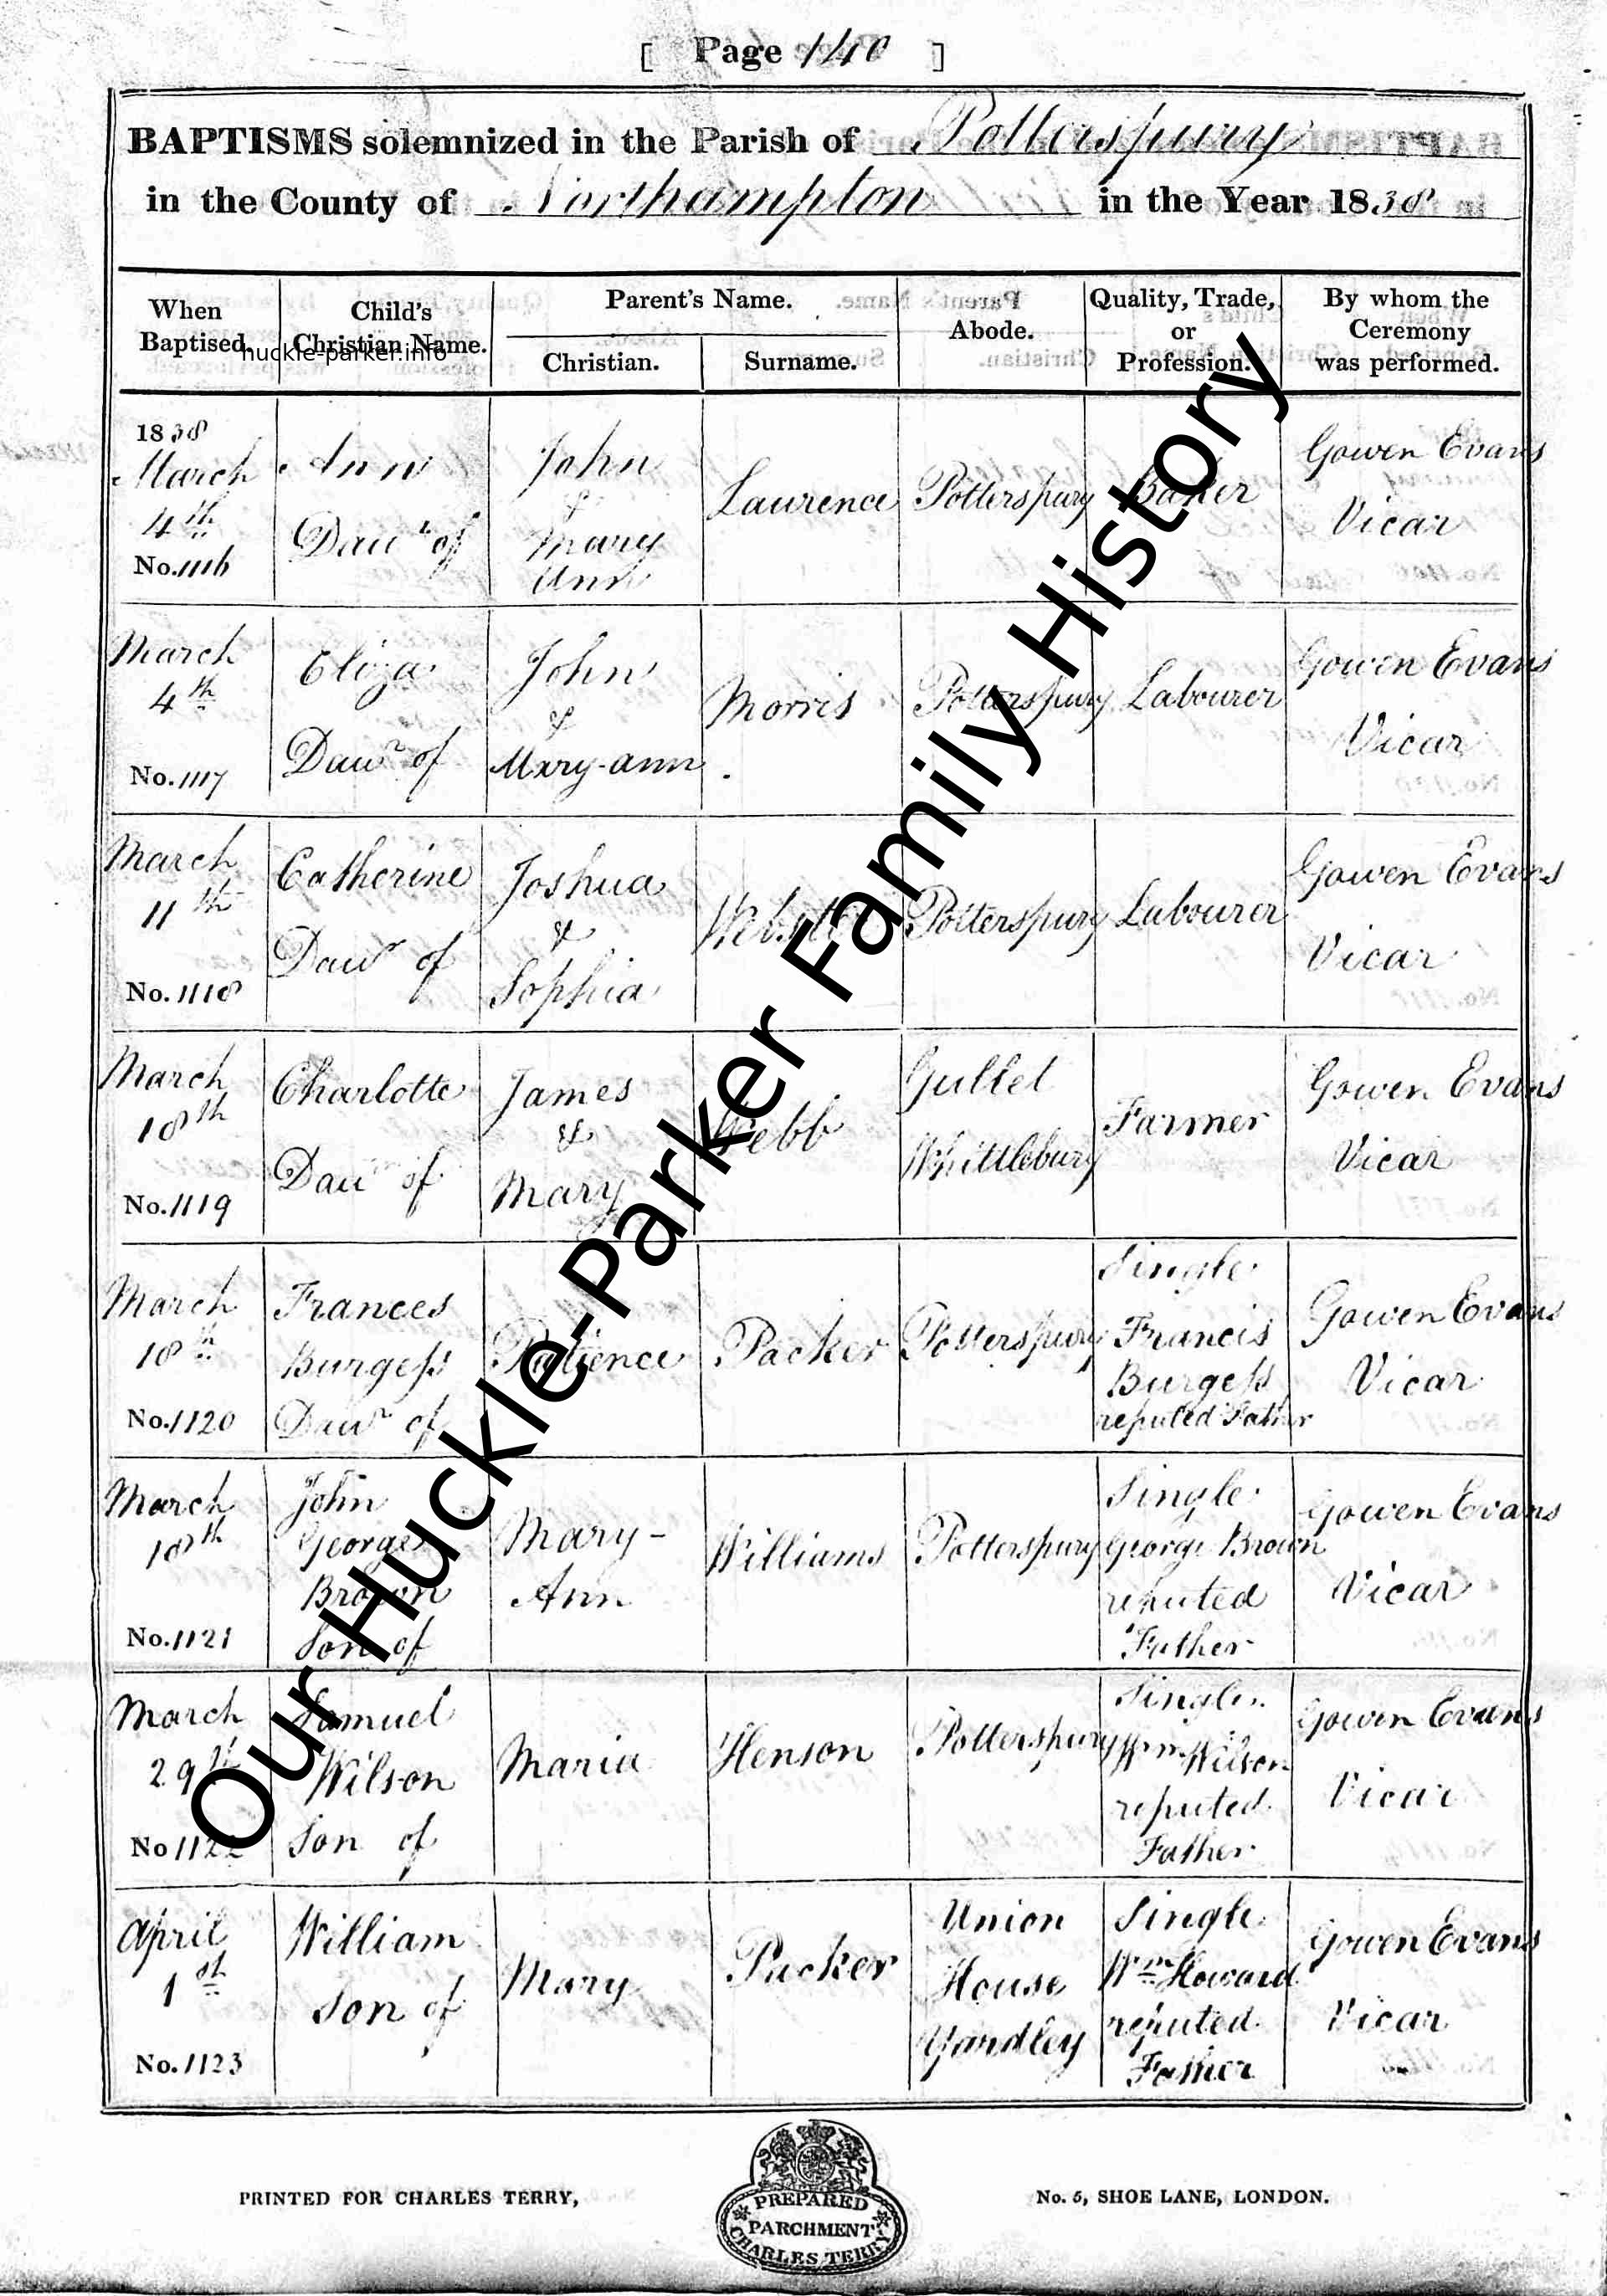 [ Page 140 ]
BAPTISMS solemnized in the Parish of Potterspury
in the County of Northampton in the Year 1838
When Baptised. Child's Christian Name. Parent's Name. Abode. Quality, Trade, or Profession. By whom the Ceremony was performed.
Christian. Surname.
huckle-parker.info
1838
March
4th
No. 1116
Ann
Daur of
John
&
Mary
Ann
Laurence
Potterspury
Baker
Gowen Evans
Vicar
March
4th
No. 1117
Eliza
Daur of
John
&
Mary-ann
Morris
Potterspury
Labourer
Gowen Evans
Vicar
March
11th
No. 1118
Catherine
Daur of
Joshua
&
Sophia
Webster
Potterspury
Labourer
Gowen Evans
Vicar
March
18th
No. 1119
Charlotte
Daur of
James
&
Mary
Webb
Gullet
Whittlebury
Farmer
Gowen Evans
Vicar
March
18th
No. 1120
Frances
Burgess
Daur of
Patience
Packer
Potterspury
Single
Francis
Burgess
reputed Father
Gowen Evans
Vicar
March
18th
No. 1121
John
George
Brown
Son of
Mary-
Ann
Williams
Potterspury
Single
George Brown
reputed
Father
Gowen Evans
Vicar
March
29th
No 1122
Samuel
Wilson
Son of
Maria
Henson
Potterspury
Single
Wm Wilson
reputed
Father
Gowen Evans
Vicar
April
1st
No. 1123
William
Son of
Mary
Packer
Union
House
Yardley
Single
Wm Howard
reputed
Father
Gowen Evans
Vicar
Our Huckle-Parker Family History
PRINTED FOR CHARLES TERRY,
PREPARED
PARCHMENT
CHARLES TERRY
No. 5, SHOE LANE, LONDON.